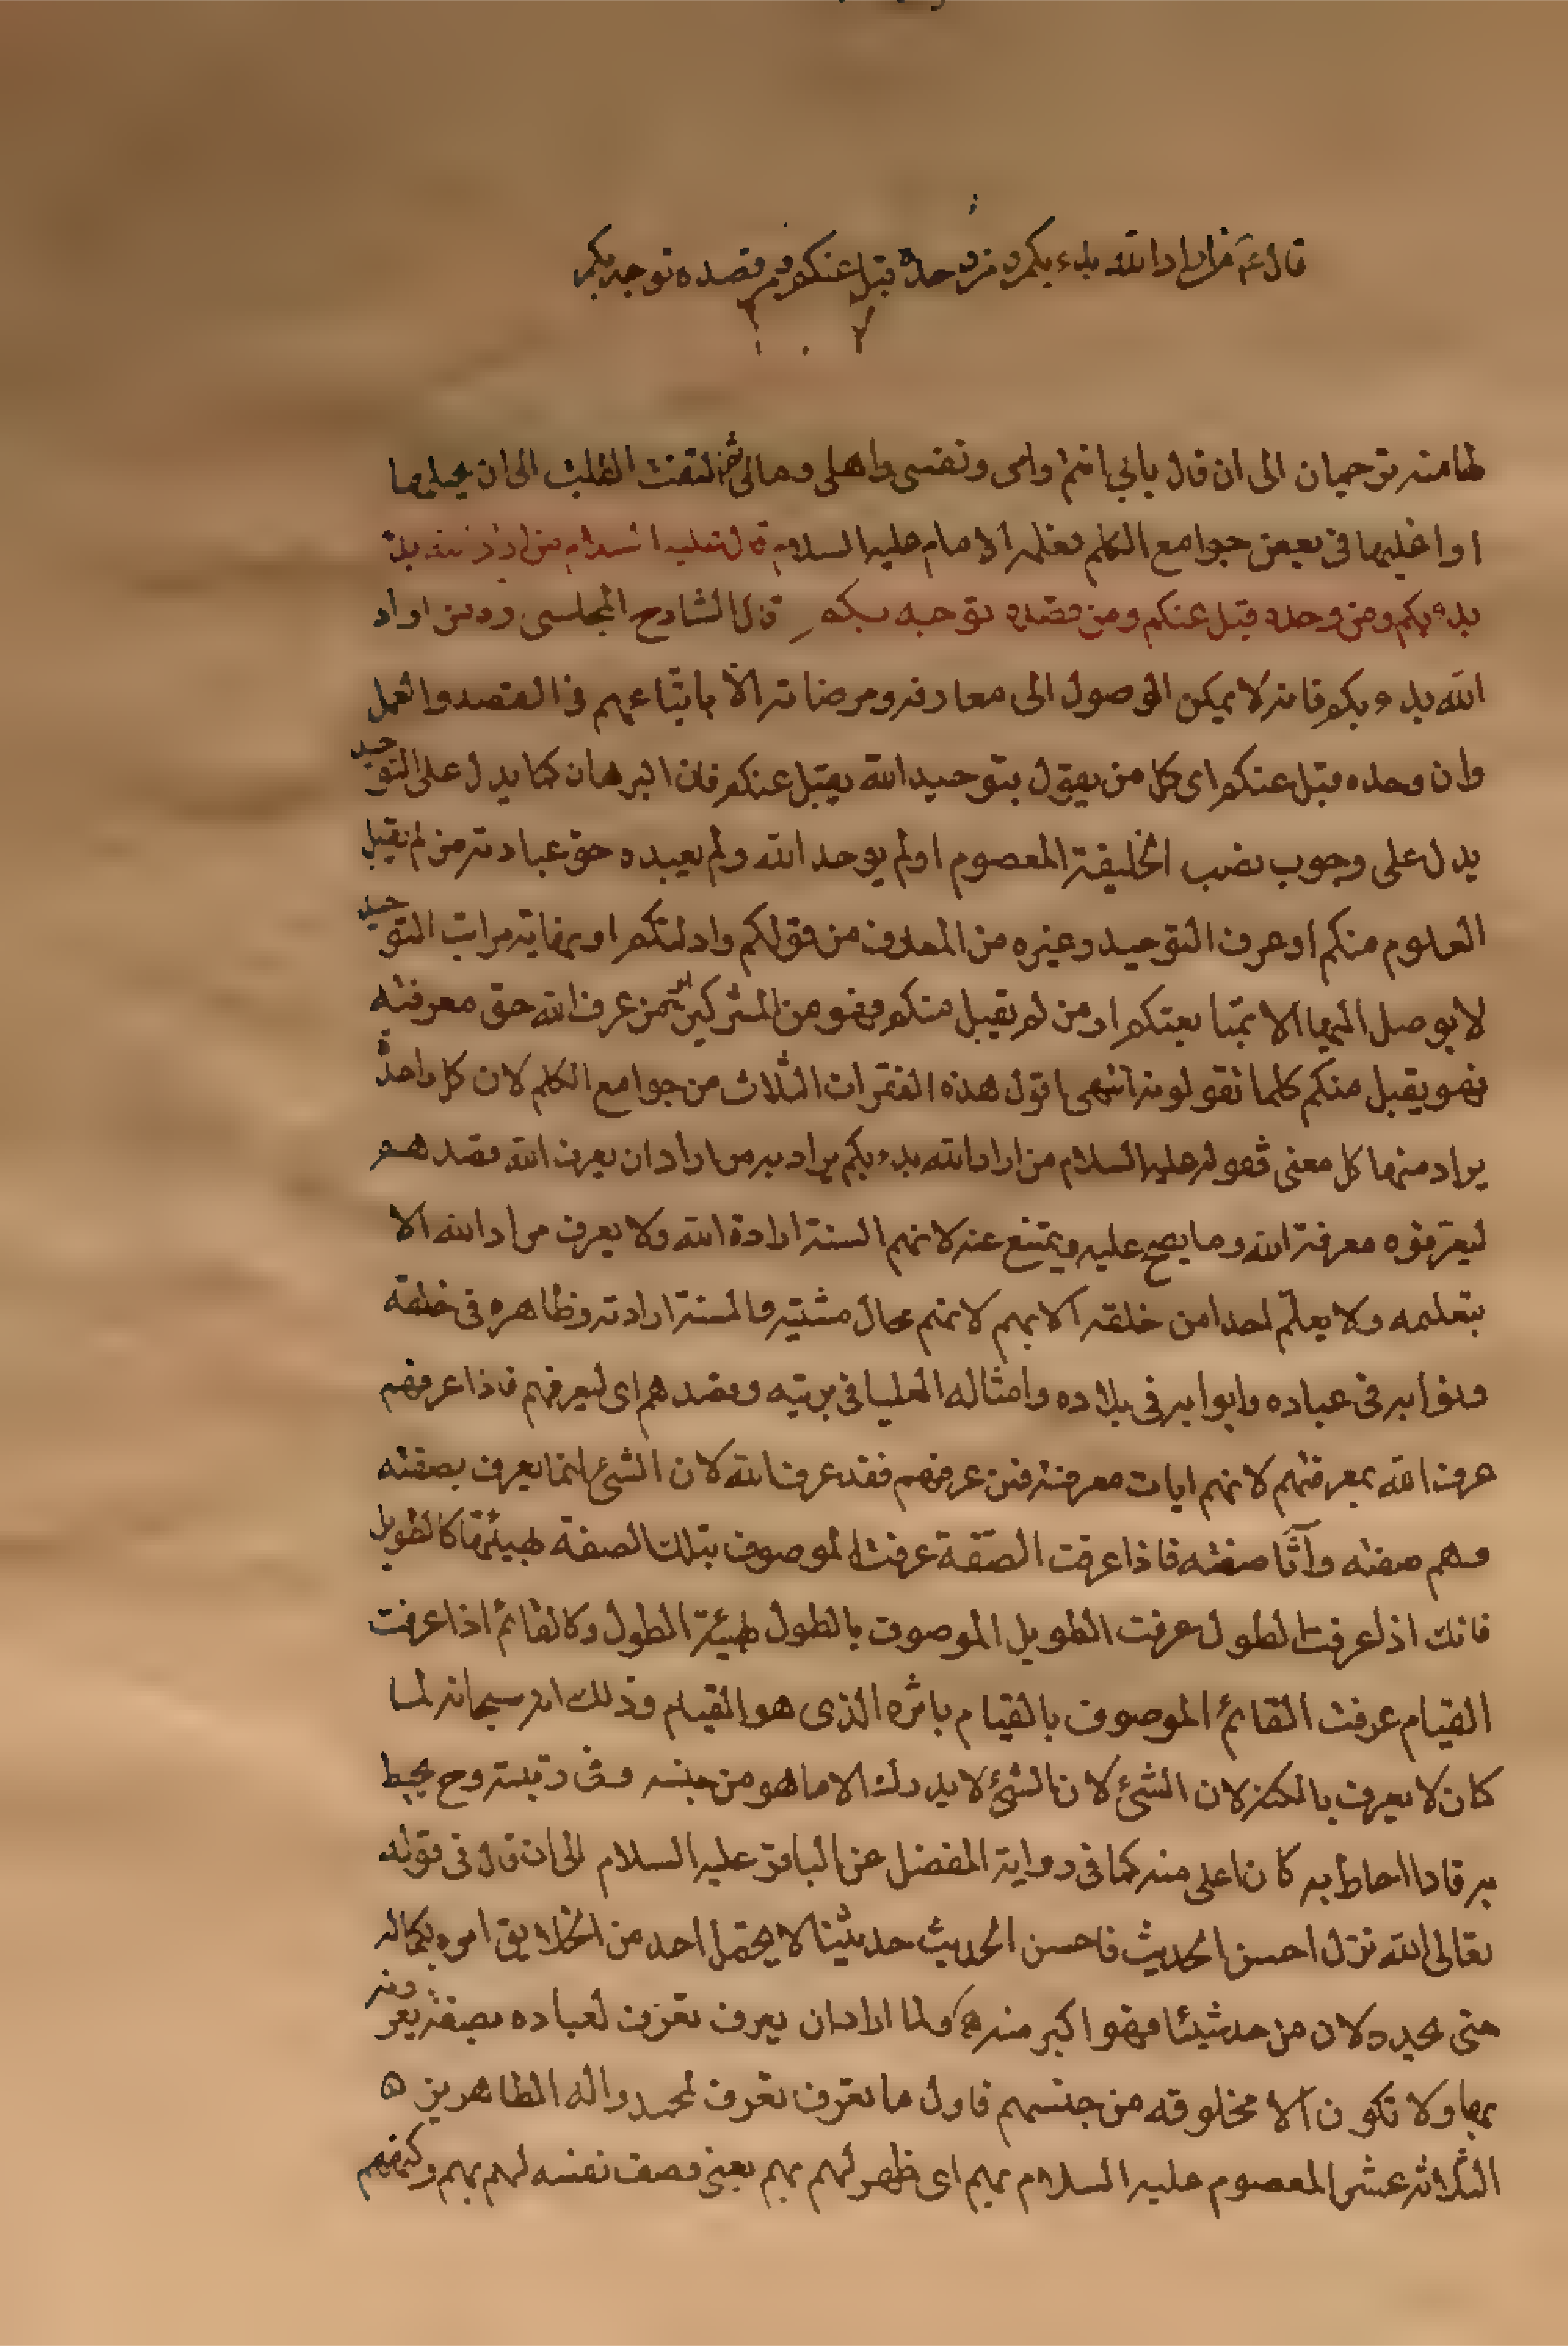 قال ع من اراد الله بدء بكم ومن وحده قبل عنكم ومن قصده توجه بكم
لها منه ترحمان الى ان قال بابي انتم وامى ونفسى واهلى ومالى ثم التفت القلب الى ان يجيلها
او اغليها فى بعض جوامع الكلم فعلمه الامام عليه السلام قال عليه السلام من اراد الله بدء
بدء بكم ومن وحده قبل عنكم ومن قصده توجه بكم قال الشارح المجلسى ره من اراد
الله بدء بكم فانه لا يمكن الوصول الى معارفه ومرضاته الّا باتباعهم فى القصد والعمل
وان وحده قبل عنكم اى كل من يقول بتوحيد الله يقبل عنكم فان البرهان كما يدل على التوحيد
يدل على وجوب نصب الخليفة المعصوم او لم يوحد الله ولم يعبده حق عبادته من لم يقبل
العلوم منكم او عرف التوحيد وغيره من المعارف من قولكم وادلتكم او بغاية مراتب التوحيد
لا يوصل اليها الا بمتابعتكم او من لم يقبل منكم فهو من المشركين ثم من عرف الله حق معرفته
فهو يقبل منكم كلما تقولونه انتهى اقول هذه الفقرات الثلاث من جوامع الكلم لان كل واحدة
يراد منها كل معنى فقوله عليه السلام من اراد الله بدء بكم يراد به من اراد ان يعرف الله قصدهم
ليعرفوه معرفة الله وما يصح عليه ويمتنع عنه لانهم السنة ارادة الله ولا يعرف مراد الله الا
بتعليمه ولا يعلم احدا من خلقه الا بهم لانهم محال مشيته والسنة ارادته وظاهره فى خلقه
ونوابه فى عباده وابوابه فى بلاده وامثاله العليا فى بريته وقصدهم اى ليعرفهم فاذا عرفهم
عرف الله بمعرفتهم لانهم ايات معرفته فمن عرفهم فقد عرف الله لان الشئ انما يعرف بصفته
وهم صفته وآثا صفته فاذا عرفت الصّفة عرفت الموصوف بتلك الصفة لهيئتها كالطويل
فانك اذا عرفت الطول عرفت الطويل الموصوف بالطول لهيئة الطول وكالقائم اذا عرفت
القيام عرفت القائم الموصوف بالقيام باثره الذى هو القيام وذلك انه سبحانه لما
كان لا يعرف بالكنه لان الشئ لان الشئ لا يدرك الا ما هو من جنسه وفى رتبته وح يحيط
به فاذا احاط به كان اعلى منه كما فى رواية المفضل عن الباقر عليه السلام الى ان قال فى قوله
تعالى الله نزل احسن الحديث فاحسن الحديث حديثنا لا يحتمل احد من الخلايق امره بكماله
حتى يحده لان من حد شيئا فهو اكبر منه ه ولما اراد ان يعرف تعرف لعباده بصفة يعرفونه
بها ولا تكون الا مخلوقه من جنسهم فاول ما تعرف تعرف لمحمد واله الطاهرين ه
الثلاثه عشر المعصوم عليه السلام بهم اى ظهر لهم بهم يعنى وصف نفسه لهم بهم وكيفهم